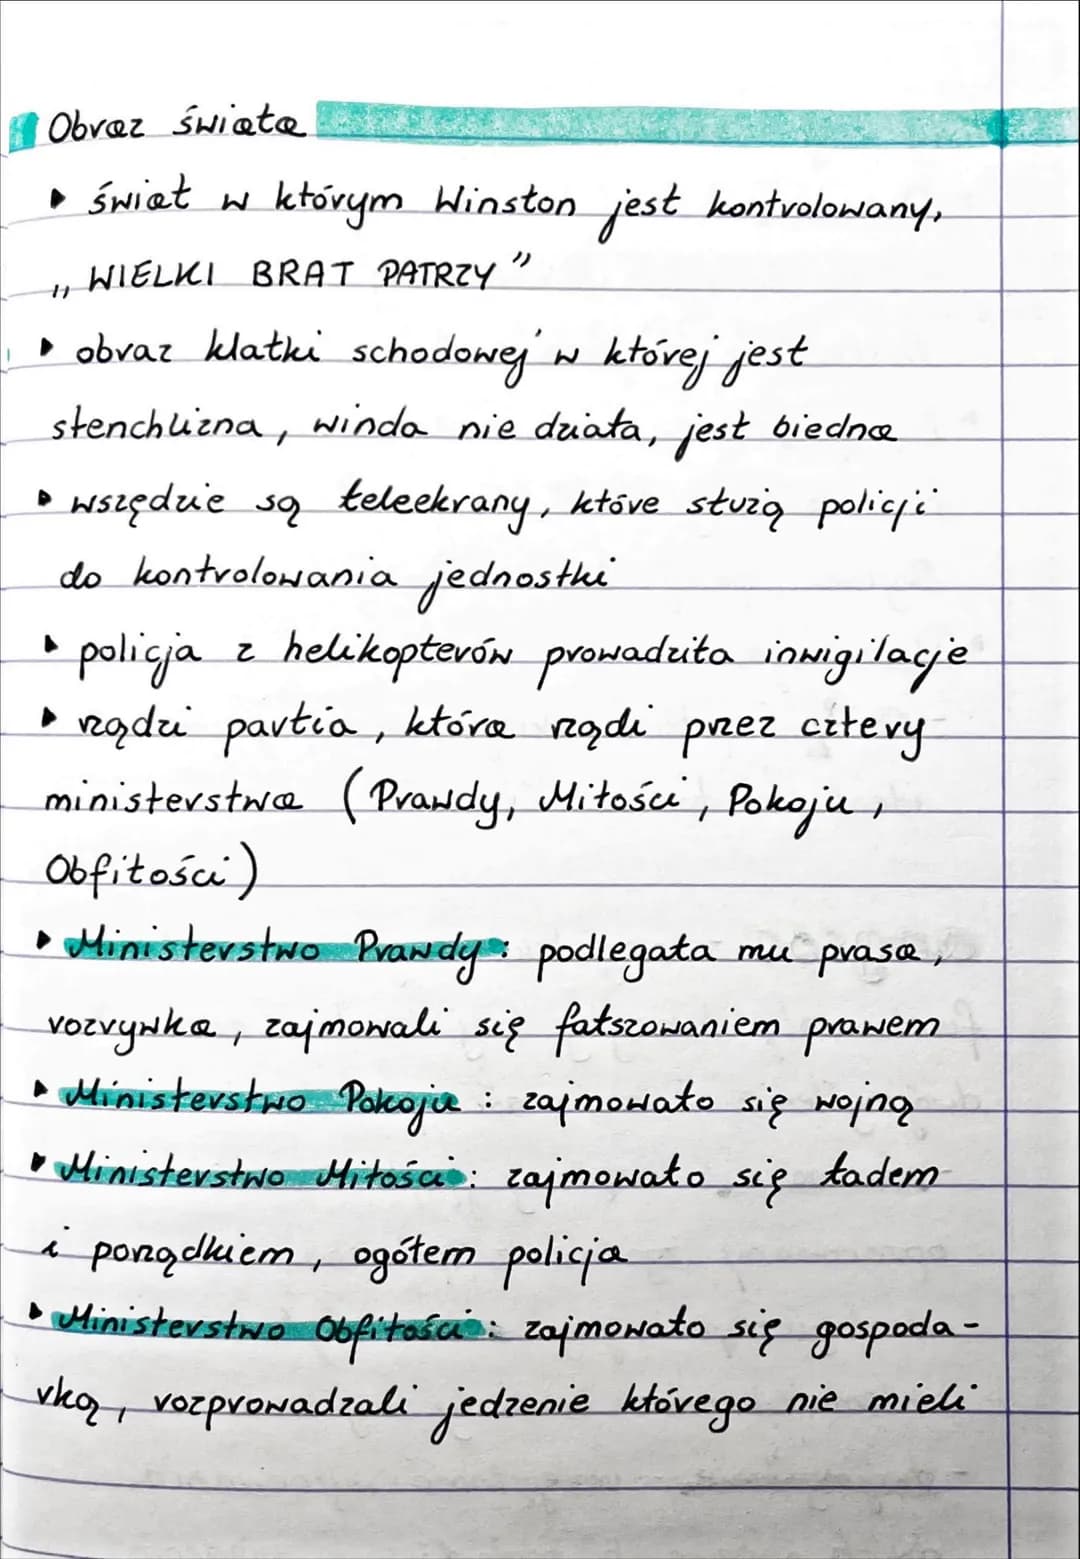 Obraz świata
▸ świat w którym Winston jest kontrolowany,
„WIELKI BRAT PATRZY"
▸ obraz klatki schodowej w której jest
stenchlizna, winda nie działa, jest biedna
▸ wszędzie są teleekrany, które służą policji
do kontrolowania jednostki
▸ policja z helikopterów prowadziła inwigilacje
▸ rządzi partia, która rządi przez cztery
ministerstwa (Prawdy, Miłości, Pokoju,
Obfitości)
▸ Ministerstwo Prawdy: podlegała mu prasa,
rozrywka, zajmowali się fałszowaniem prawem
▸ Ministerstwo Pokoju: zajmowało się wojną
▸ Ministerstwo Miłości: zajmowało się ładem
i porządkiem, ogółem policja
▸ Ministerstwo Obfitości: zajmowało się gospoda-
rką, rozprowadzali jedzenie którego nie mieli